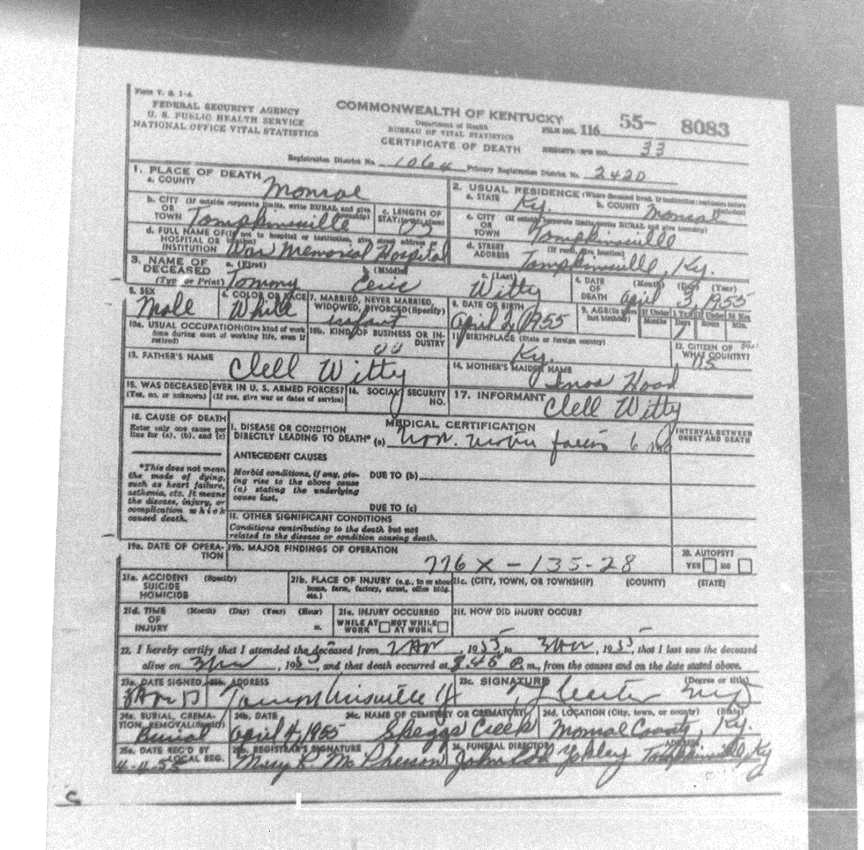 Form V. S. 1-A
FEDERAL SECURITY AGENCY
U. S. PUBLIC HEALTH SERVICE
NATIONAL OFFICE VITAL STATISTICS
COMMONWEALTH OF KENTUCKY
Department of Health
BUREAU OF VITAL STATISTICS
CERTIFICATE OF DEATH
FILE NO. 116 55- 8083
REGISTRAR'S NO. 33
Registration District No. 1064 Primary Registration District No. 2420
1. PLACE OF DEATH
a. COUNTY Monroe
2. USUAL RESIDENCE (Where deceased lived. If institution: residence before admission)
a. STATE Ky. b. COUNTY Monroe
b. CITY (If outside corporate limits, write RURAL and give township)
OR
TOWN Tompkinsville
c. LENGTH OF STAY
c. CITY (If outside corporate limits, write RURAL and give township)
OR
TOWN Tompkinsville
d. FULL NAME OF (If not in hospital or institution, give street address or location)
HOSPITAL OR
INSTITUTION War Memorial Hospital
d. STREET (If rural, give location)
ADDRESS Tompkinsville, Ky.
3. NAME OF DECEASED
(Type or Print)
a. (First) Tommy
b. (Middle) Eric
c. (Last) Witty
4. DATE OF DEATH (Month) (Day) (Year)
April 3, 1955
5. SEX
Male
6. COLOR OR RACE
White
7. MARRIED, NEVER MARRIED, WIDOWED, DIVORCED (Specify)
infant
8. DATE OF BIRTH
April 2, 1955
9. AGE (In years last birthday)
If Under 1 Year
Months Days
1
If Under 24 Hrs.
Hours Min.
10a. USUAL OCCUPATION (Give kind of work done during most of working life, even if retired)
10b. KIND OF BUSINESS OR INDUSTRY
11. BIRTHPLACE (State or foreign country)
Ky.
12. CITIZEN OF WHAT COUNTRY?
US
13. FATHER'S NAME
Clell Witty
14. MOTHER'S MAIDEN NAME
Hood
15. WAS DECEASED EVER IN U. S. ARMED FORCES?
(Yes, no, or unknown) (If yes, give war or dates of service)
16. SOCIAL SECURITY NO.
17. INFORMANT
Clell Witty
18. CAUSE OF DEATH
Enter only one cause per line for (a), (b), and (c)
MEDICAL CERTIFICATION
I. DISEASE OR CONDITION
DIRECTLY LEADING TO DEATH* (a) 6
INTERVAL BETWEEN ONSET AND DEATH
*This does not mean the mode of dying, such as heart failure, asthenia, etc. It means the disease, injury, or complication which caused death.
ANTECEDENT CAUSES
Morbid conditions, if any, giving rise to the above cause (a) stating the underlying cause last.
DUE TO (b)
DUE TO (c)
II. OTHER SIGNIFICANT CONDITIONS
Conditions contributing to the death but not related to the disease or condition causing death.
19a. DATE OF OPERATION
19b. MAJOR FINDINGS OF OPERATION
776X-135-28
20. AUTOPSY?
YES NO
21a. ACCIDENT (Specify)
SUICIDE
HOMICIDE
21b. PLACE OF INJURY (e.g., in or about home, farm, factory, street, office bldg. etc.)
21c. (CITY, TOWN, OR TOWNSHIP) (COUNTY) (STATE)
21d. TIME OF INJURY (Month) (Day) (Year) (Hour)
m.
21e. INJURY OCCURRED
WHILE AT WORK NOT WHILE AT WORK
21f. HOW DID INJURY OCCUR?
22. I hereby certify that I attended the deceased from 2 Apr, 1955, to 3 Apr, 1955, that I last saw the deceased
alive on 3 Apr, 1955, and that death occurred at 8:45 P. m., from the causes and on the date stated above.
23a. DATE SIGNED
23b. ADDRESS
Tompkinsville Ky
23c. SIGNATURE (Degree or title)
24a. BURIAL, CREMATION, REMOVAL (Specify)
Burial
24b. DATE
April 4, 1955
24c. NAME OF CEMETERY OR CREMATORY
Skeggs Creek
24d. LOCATION (City, town, or county) (State)
Monroe County, Ky.
25a. DATE REC'D BY LOCAL REG.
4-4-55
25b. REGISTRAR'S SIGNATURE
Mary R. McPherson
26. FUNERAL DIRECTOR
Yokley Tompkinsville, Ky